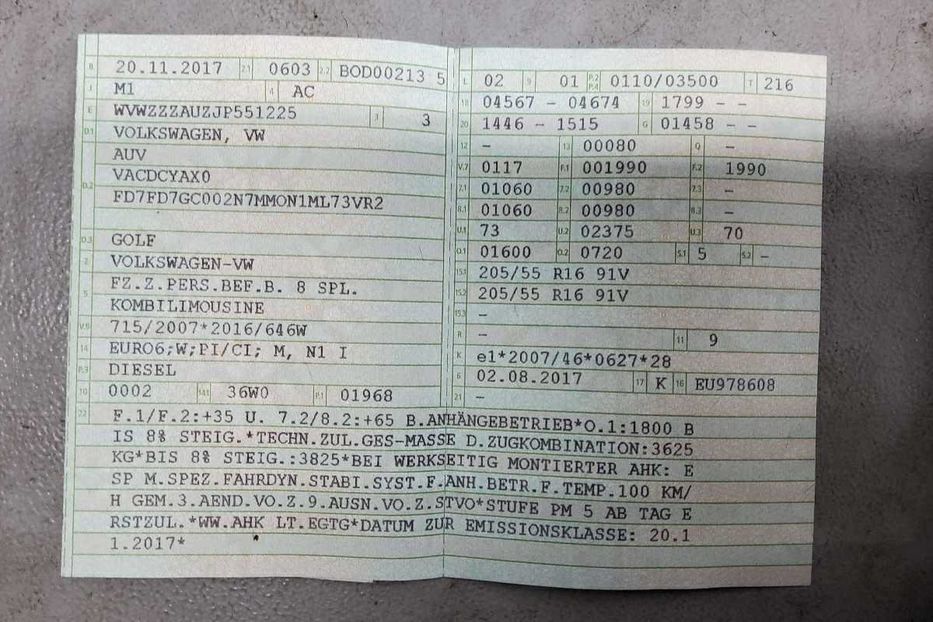 B 20.11.2017 2.1 0603 2.2 BOD00213 5
J M1 4 AC
E WVWZZZAUZJP551225 3 3
D.1 VOLKSWAGEN, VW
AUV
D.2 VACDCYAX0
FD7FD7GC002N7MMON1ML73VR2
D.3 GOLF
2 VOLKSWAGEN-VW
5 FZ.Z.PERS.BEF.B. 8 SPL.
KOMBILIMOUSINE
V.9 715/2007*2016/646W
14 EURO6;W;PI/CI; M, N1 I
P.3 DIESEL
10 0002 14.1 36W0 P.1 01968
L 02 9 01 P.2 P.4 0110/03500 T 216
18 04567 - 04674 19 1799 - -
20 1446 - 1515 G 01458 - -
12 - 13 00080 Q -
V.7 0117 F.1 001990 F.2 1990
7.1 01060 7.2 00980 7.3 -
8.1 01060 8.2 00980 8.3 -
U.1 73 U.2 02375 U.3 70
O.1 01600 O.2 0720 S.1 5 S.2 -
15.1 205/55 R16 91V
15.2 205/55 R16 91V
15.3 -
R - 11 9
K e1*2007/46*0627*28
6 02.08.2017 17 K 16 EU978608
21 -
22 F.1/F.2:+35 U. 7.2/8.2:+65 B.ANHÄNGEBETRIEB*O.1:1800 B
IS 8% STEIG.*TECHN.ZUL.GES-MASSE D.ZUGKOMBINATION:3625
KG*BIS 8% STEIG.:3825*BEI WERKSEITIG MONTIERTER AHK: E
SP M.SPEZ.FAHRDYN.STABI.SYST.F.ANH.BETR.F.TEMP.100 KM/
H GEM.3.AEND.VO.Z.9.AUSN.VO.Z.STVO*STUFE PM 5 AB TAG E
RSTZUL.*WW.AHK LT.EGTG*DATUM ZUR EMISSIONSKLASSE: 20.1
1.2017*